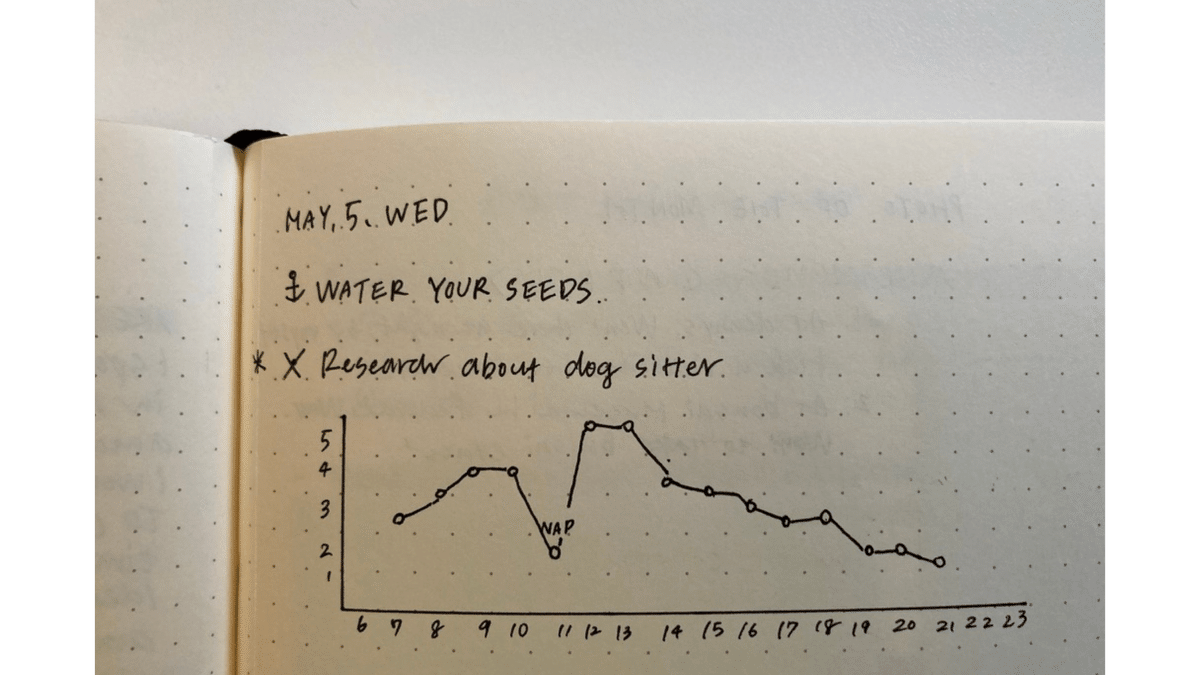 MAY, 5. WED
⚓ WATER YOUR SEEDS.
* X Research about dog sitter.
5
4
3
2
1
NAP
6 7 8 9 10 11 12 13 14 15 16 17 18 19 20 21 22 23